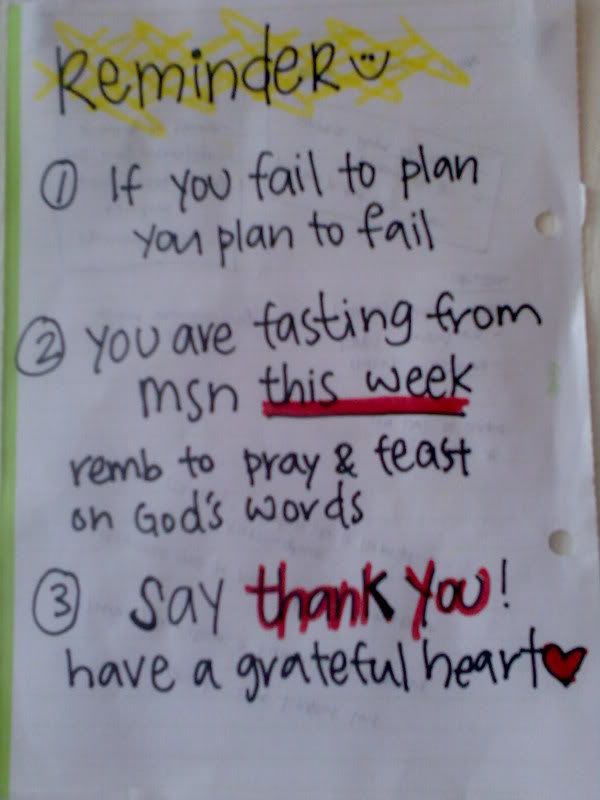 Reminder
① If you fail to plan
you plan to fail
② you are fasting from
msn this week
remb to pray & feast
on God's words
③ say thank you!
have a grateful heart